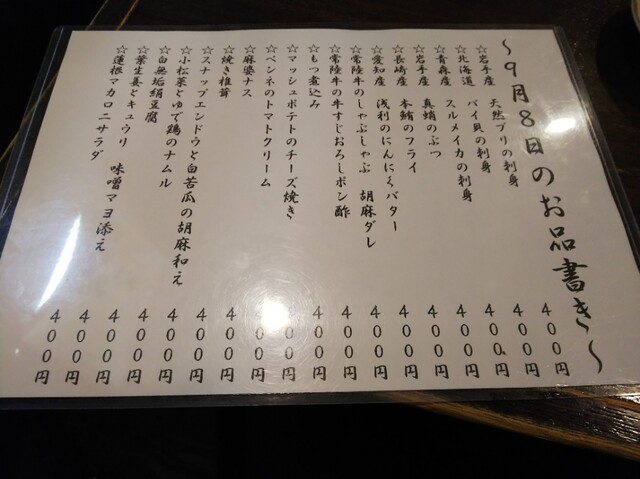 〜9月8日のお品書き〜
☆岩手産 天然ブリの刺身 400円
☆北海道 バイ貝の刺身 400円
☆青森産 スルメイカの刺身 400円
☆岩手産 真蛸のぶつ 400円
☆長崎産 本鮪のフライ 400円
☆愛知産 浅利のにんにくバター 400円
☆常陸牛のしゃぶしゃぶ 胡麻ダレ 400円
☆常陸牛の牛すじおろしポン酢 400円
☆もつ煮込み 400円
☆マッシュポテトのチーズ焼き 400円
☆ペンネのトマトクリーム 400円
☆麻婆ナス 400円
☆焼き椎茸 400円
☆スナップエンドウと白苦瓜の胡麻和え 400円
☆小松菜とゆで鶏のナムル 400円
☆白無垢絹豆腐 400円
☆葉生姜とキュウリ 味噌マヨ添え 400円
☆蓮根マカロニサラダ 400円